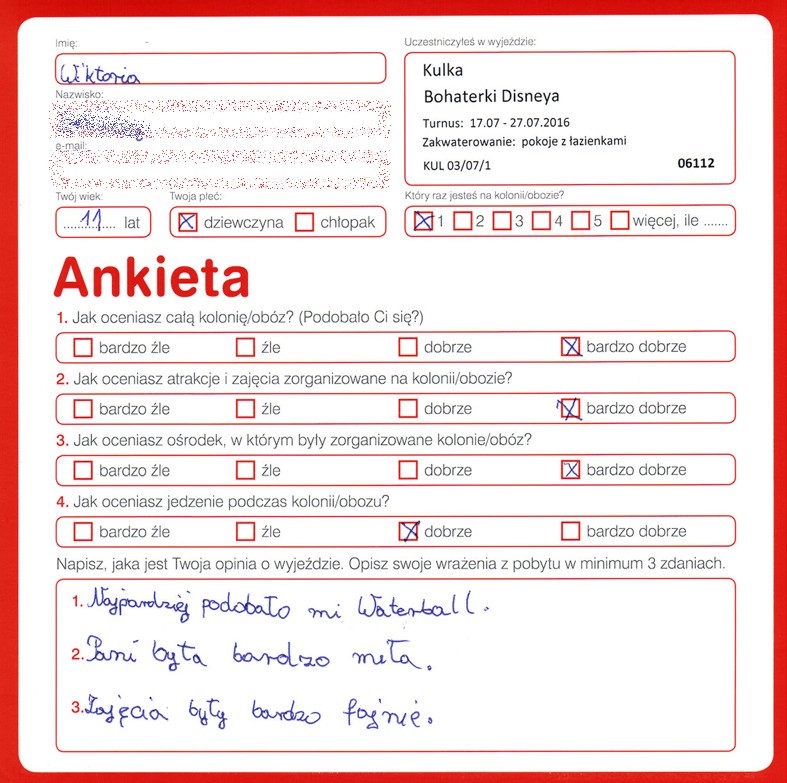 Imię:
Uczestniczyłeś w wyjeździe:
Wiktoria
Kulka
Bohaterki Disneya
Turnus: 17.07 - 27.07.2016
Zakwaterowanie: pokoje z łazienkami
KUL 03/07/1 06112
Nazwisko:
e-mail:
Twój wiek: Twoja płeć: Który raz jesteś na kolonii/obozie?
11 lat dziewczyna chłopak 1 2 3 4 5 więcej, ile .......
Ankieta
1. Jak oceniasz całą kolonię/obóz? (Podobało Ci się?)
bardzo źle źle dobrze bardzo dobrze
2. Jak oceniasz atrakcje i zajęcia zorganizowane na kolonii/obozie?
bardzo źle źle dobrze bardzo dobrze
3. Jak oceniasz ośrodek, w którym były zorganizowane kolonie/obóz?
bardzo źle źle dobrze bardzo dobrze
4. Jak oceniasz jedzenie podczas kolonii/obozu?
bardzo źle źle dobrze bardzo dobrze
Napisz, jaka jest Twoja opinia o wyjeździe. Opisz swoje wrażenia z pobytu w minimum 3 zdaniach.
1. Najpardziej podobało mi Waterball.
2. Pani była bardzo miła.
3. Zajęcia były bardzo fajnie.